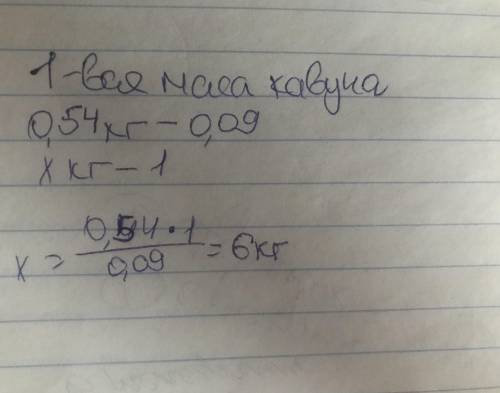 1-вся маса кавуна
0,54кг - 0,09
x кг - 1
x = 0,54·1 / 0,09 = 6кг